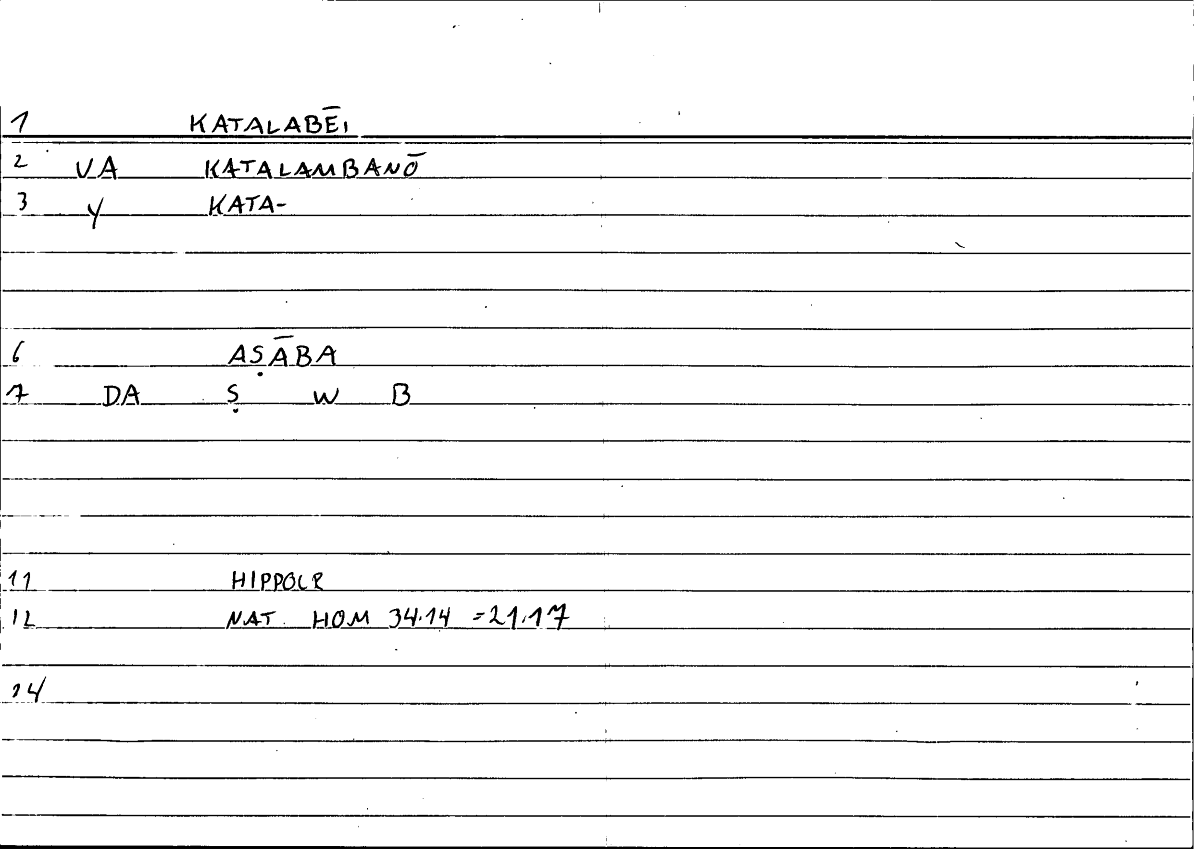 1 KATALABĒI
2 VA KATALAMBANŌ
3 Y KATA-
6 AṢĀBA
7 DA Ṣ W B
11 HIPPOCR
12 NAT. HOM 34.14 =21.17
14